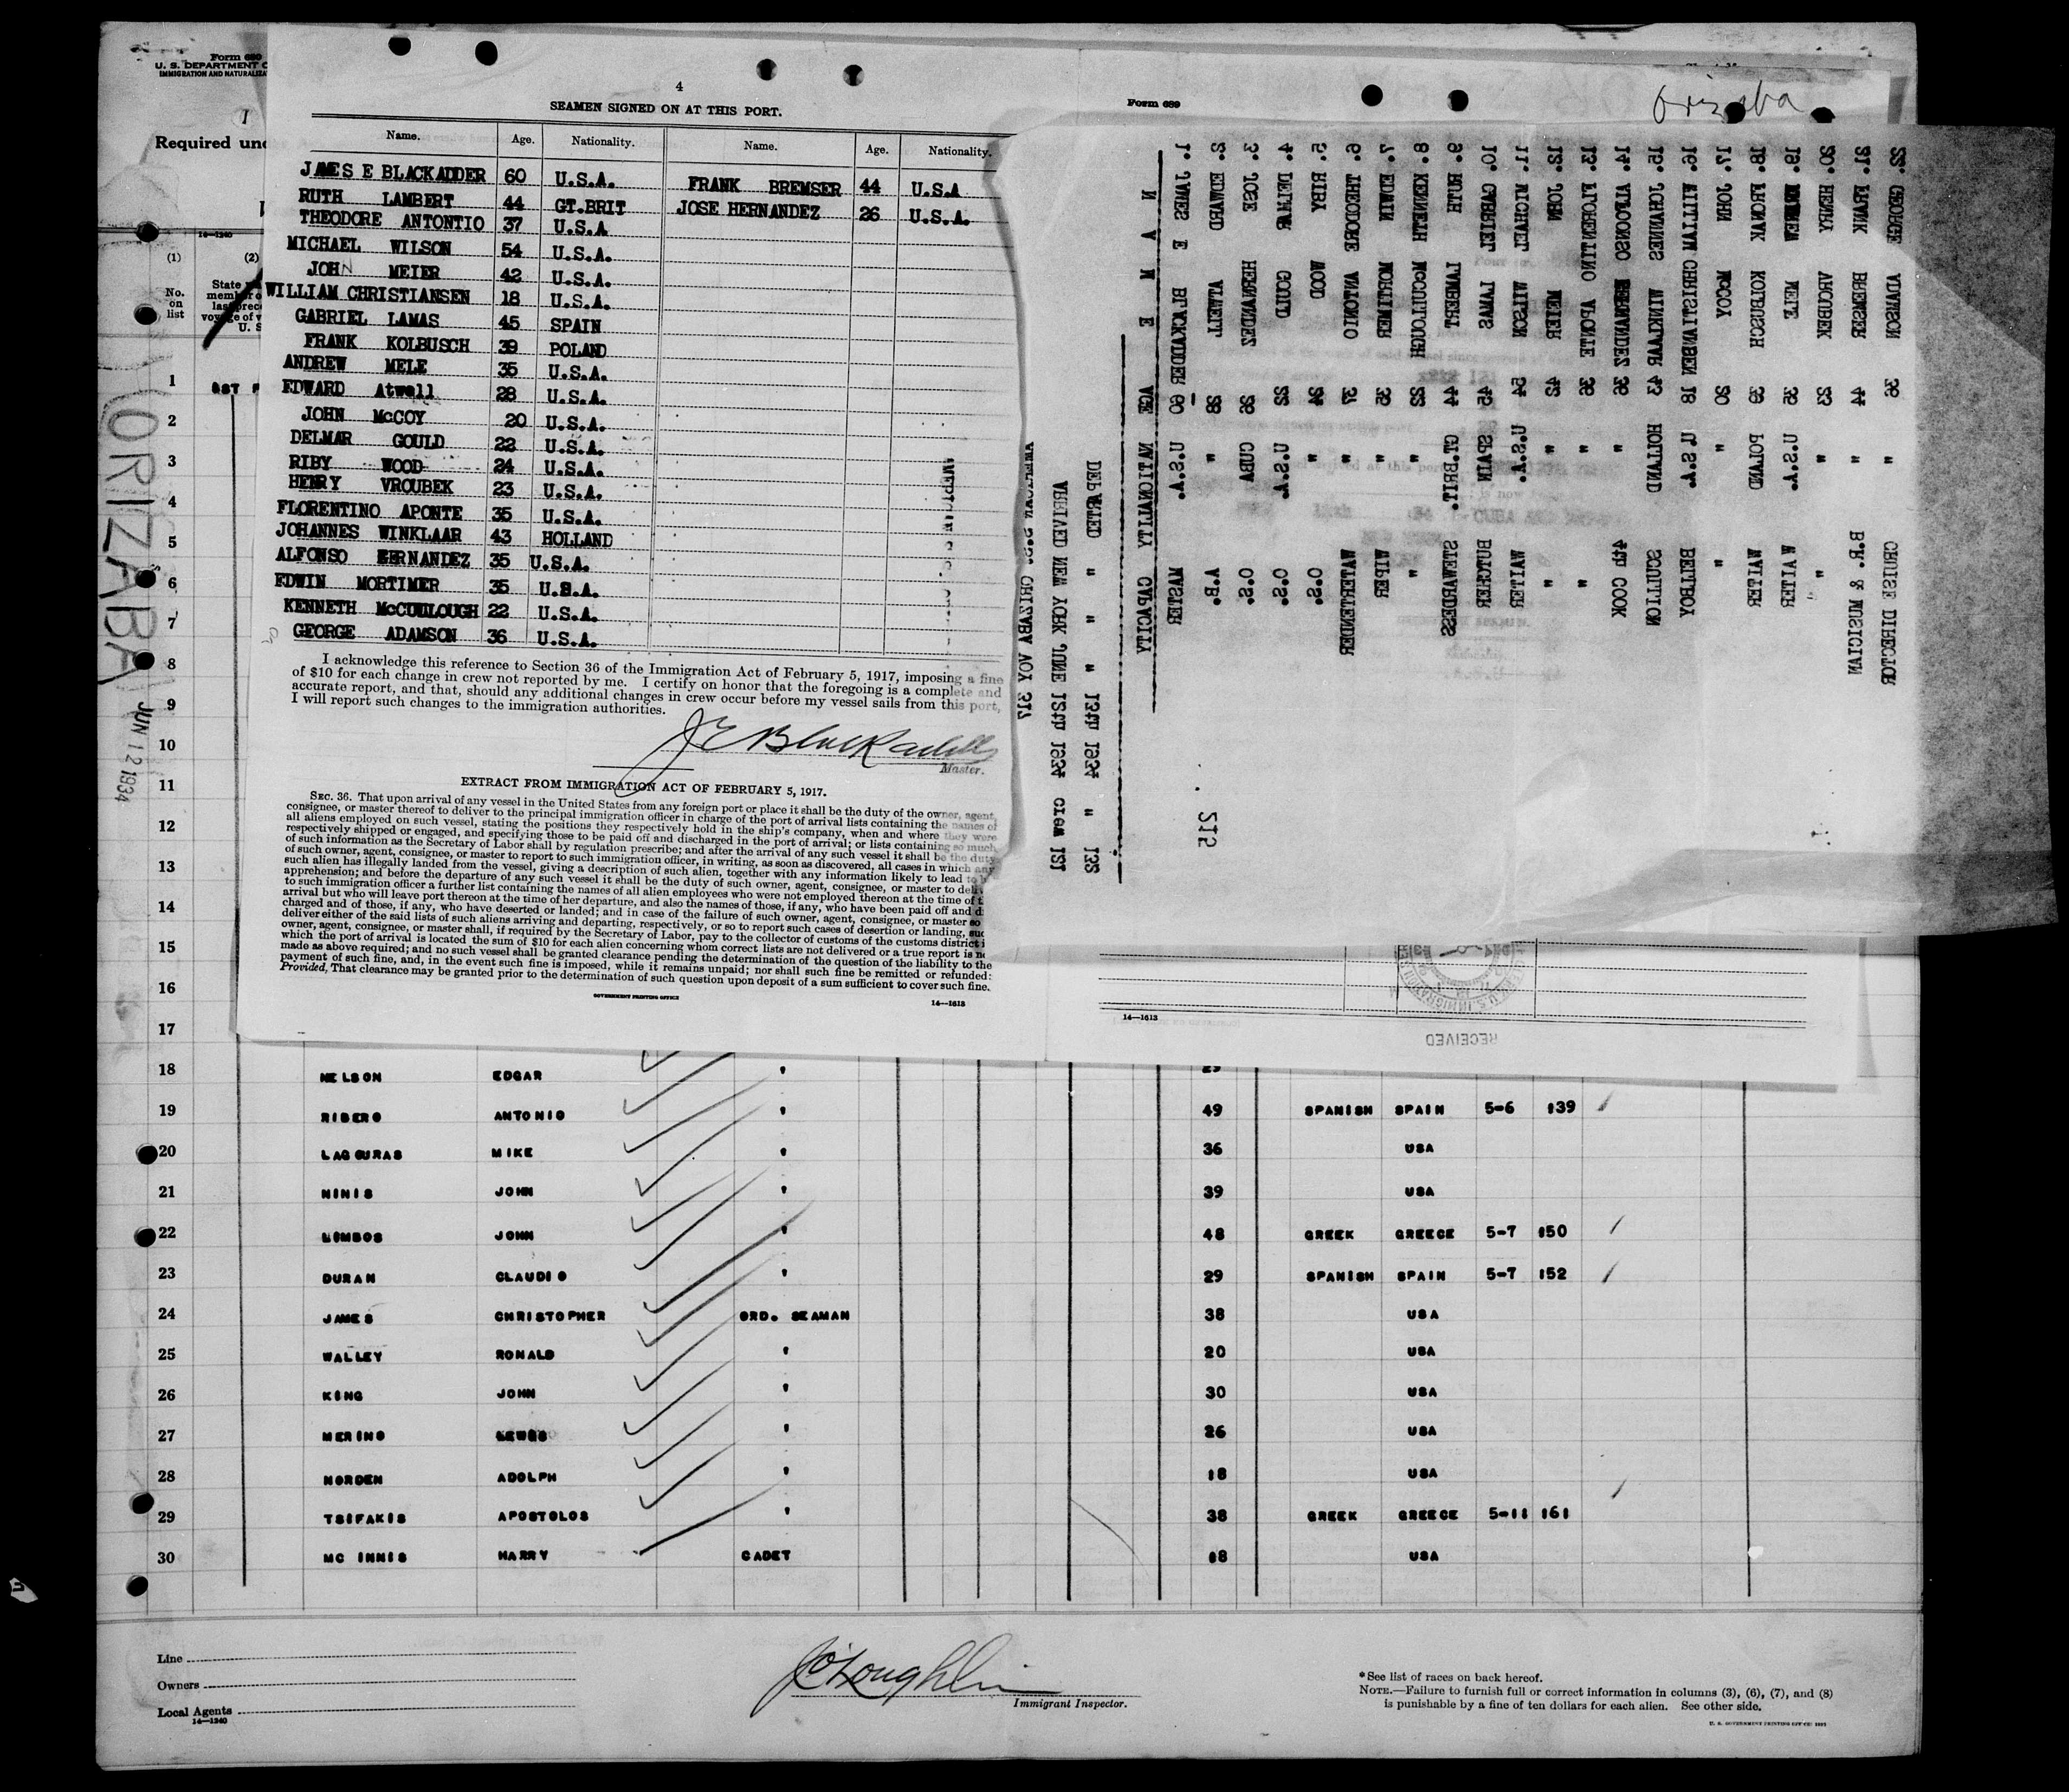 Form 689
U. S. DEPARTMENT
IMMIGRATION AND
Required
14—1240
(1)
(2)
No. on list
ORIZABA
JUN 12 1934
4
SEAMEN SIGNED ON AT THIS PORT.
Name. Age. Nationality. Name. Age. Nationality.
JAMES E BLACKADDER 60 U.S.A. FRANK BREMSER 44 U.S.A
RUTH LAMBERT 44 GT.BRIT JOSE HERNANDEZ 26 U.S.A.
THEODORE ANTONTIO 37 U.S.A
MICHAEL WILSON 54 U.S.A.
JOHN MEIER 42 U.S.A.
WILLIAM CHRISTIANSEN 18 U.S.A.
GABRIEL LAMAS 45 SPAIN
FRANK KOLBUSCH 39 POLAND
ANDREW MELE 35 U.S.A.
EDWARD Atwell 28 U.S.A.
JOHN McCOY 20 U.S.A.
DELMAR GOULD 22 U.S.A.
RIBY WOOD 24 U.S.A.
HENRY VROUBEK 23 U.S.A.
FLORENTINO APONTE 35 U.S.A.
JOHANNES WINKLAAR 43 HOLLAND
ALFONSO HERNANDEZ 35 U.S.A.
EDWIN MORTIMER 35 U.S.A.
KENNETH McCULLOUGH 22 U.S.A.
GEORGE ADAMSON 36 U.S.A.
I acknowledge this reference to Section 36 of the Immigration Act of February 5, 1917, imposing a fine
of $10 for each change in crew not reported by me. I certify on honor that the foregoing is a complete and
accurate report, and that, should any additional changes in crew occur before my vessel sails from this port,
I will report such changes to the immigration authorities.
J E Blackadder
Master.
EXTRACT FROM IMMIGRATION ACT OF FEBRUARY 5, 1917.
SEC. 36. That upon arrival of any vessel in the United States from any foreign port or place it shall be the duty of the owner, agent,
consignee, or master thereof to deliver to the principal immigration officer in charge of the port of arrival lists containing the names of
all aliens employed on such vessel, stating the positions they respectively hold in the ship's company, when and where they were
respectively shipped or engaged, and specifying those to be paid off and discharged in the port of arrival; or lists containing so much
of such information as the Secretary of Labor shall by regulation prescribe; and after the arrival of any such vessel it shall be the duty
of such owner, agent, consignee, or master to report to such immigration officer, in writing, as soon as discovered, all cases in which any
such alien has illegally landed from the vessel, giving a description of such alien, together with any information likely to lead to
apprehension; and before the departure of any such vessel it shall be the duty of such owner, agent, consignee, or master to
to such immigration officer a further list containing the names of all alien employees who were not employed thereon at the time of
arrival but who will leave port thereon at the time of her departure, and also the names of those, if any, who have been paid off and
charged and of those, if any, who have deserted or landed; and in case of the failure of such owner, agent, consignee, or master so
deliver either of the said lists of such aliens arriving and departing, respectively, or so to report such cases of desertion or landing,
owner, agent, consignee, or master shall, if required by the Secretary of Labor, pay to the collector of customs of the customs district
which the port of arrival is located the sum of $10 for each alien concerning whom correct lists are not delivered or a true report is
made as above required; and no such vessel shall be granted clearance pending the determination of the question of the liability to the
payment of such fine, and, in the event such fine is imposed, while it remains unpaid; nor shall such fine be remitted or refunded:
Provided, That clearance may be granted prior to the determination of such question upon deposit of a sum sufficient to cover such fine.
GOVERNMENT PRINTING OFFICE 14—1613
Form 689
Orizaba
S.S. ORIZABA VOY 317
ARRIVED NEW YORK JUNE 12th 1934 crew 131
DEPARTED " " " 13th 1934 " 132
N A M E AGE NATIONALITY CAPACITY
1. JAMES E BLACKADDER 60 U.S.A. MASTER
2. EDWARD ATWELL 28 " A.B.
3. JOSE HERNANDEZ 26 CUBA O.S.
4. DELMAR GOULD 22 U.S.A. O.S.
5. RIBY WOOD 24 " O.S.
6. THEODORE ANTONIO 37 " WATERTENDER
7. EDWIN MORTIMER 35 " WIPER
8. KENNETH McCULLOUGH 22 " "
9. RUTH LAMBERT 44 GT.BRIT. STEWARDESS
10. GABRIEL LAMAS 45 SPAIN BUTCHER
11. MICHAEL WILSON 54 U.S.A. WAITER
12. JOHN MEIER 42 " "
13. FLORENTINO APONTE 36 " "
14. ALFOONSO HERNANDEZ 36 " 4th COOK
15. JOHANNES WINKLAAR 43 HOLLAND SCULLION
16. WILLIAM CHRISTIANSEN 18 U.S.A. BELLBOY
17. JOHN McCOY 20 " "
18. FRONAK KOLBUSCH 39 POLAND WAITER
19. ANDREW MELE 35 U.S.A. WAITER
20. HENRY VROUBEK 23 " "
21. FRANK BREMSER 44 " B.R. & MUSICIAN
22. GEORGE ADAMSON 36 " CRUISE DIRECTOR
215
14—1613
RECEIVED
1
2
3
4
5
6
7
8
9
10
11
12
13
14
15
16
17
18 NELSON EDGAR "
19 RIBERO ANTONIO " 49 SPANISH SPAIN 5-6 139
20 LAGOURAS MIKE " 36 USA
21 NINIS JOHN " 39 USA
22 LIMBOS JOHN " 48 GREEK GREECE 5-7 150
23 DURAN CLAUDIO " 29 SPANISH SPAIN 5-7 152
24 JAMES CHRISTOPHER ORD. SEAMAN 38 USA
25 WALLEY RONALD " 20 USA
26 KING JOHN " 30 USA
27 MERINO " 26 USA
28 NORDEN ADOLPH " 18 USA
29 TSIFAKIS APOSTOLOS " 38 GREEK GREECE 5-11 161
30 MC INNIS HARRY CADET 18 USA
Line
Owners
Local Agents
14—1240
J O'Loughlin
Immigrant Inspector.
*See list of races on back hereof.
NOTE.—Failure to furnish full or correct information in columns (3), (6), (7), and (8)
is punishable by a fine of ten dollars for each alien. See other side.
U. S. GOVERNMENT PRINTING OFFICE: 1931